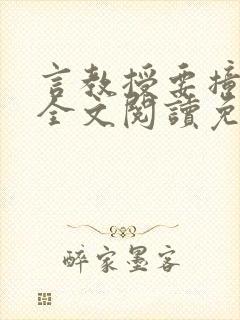 言教授要撞
全文閱讀免
醉家墨客